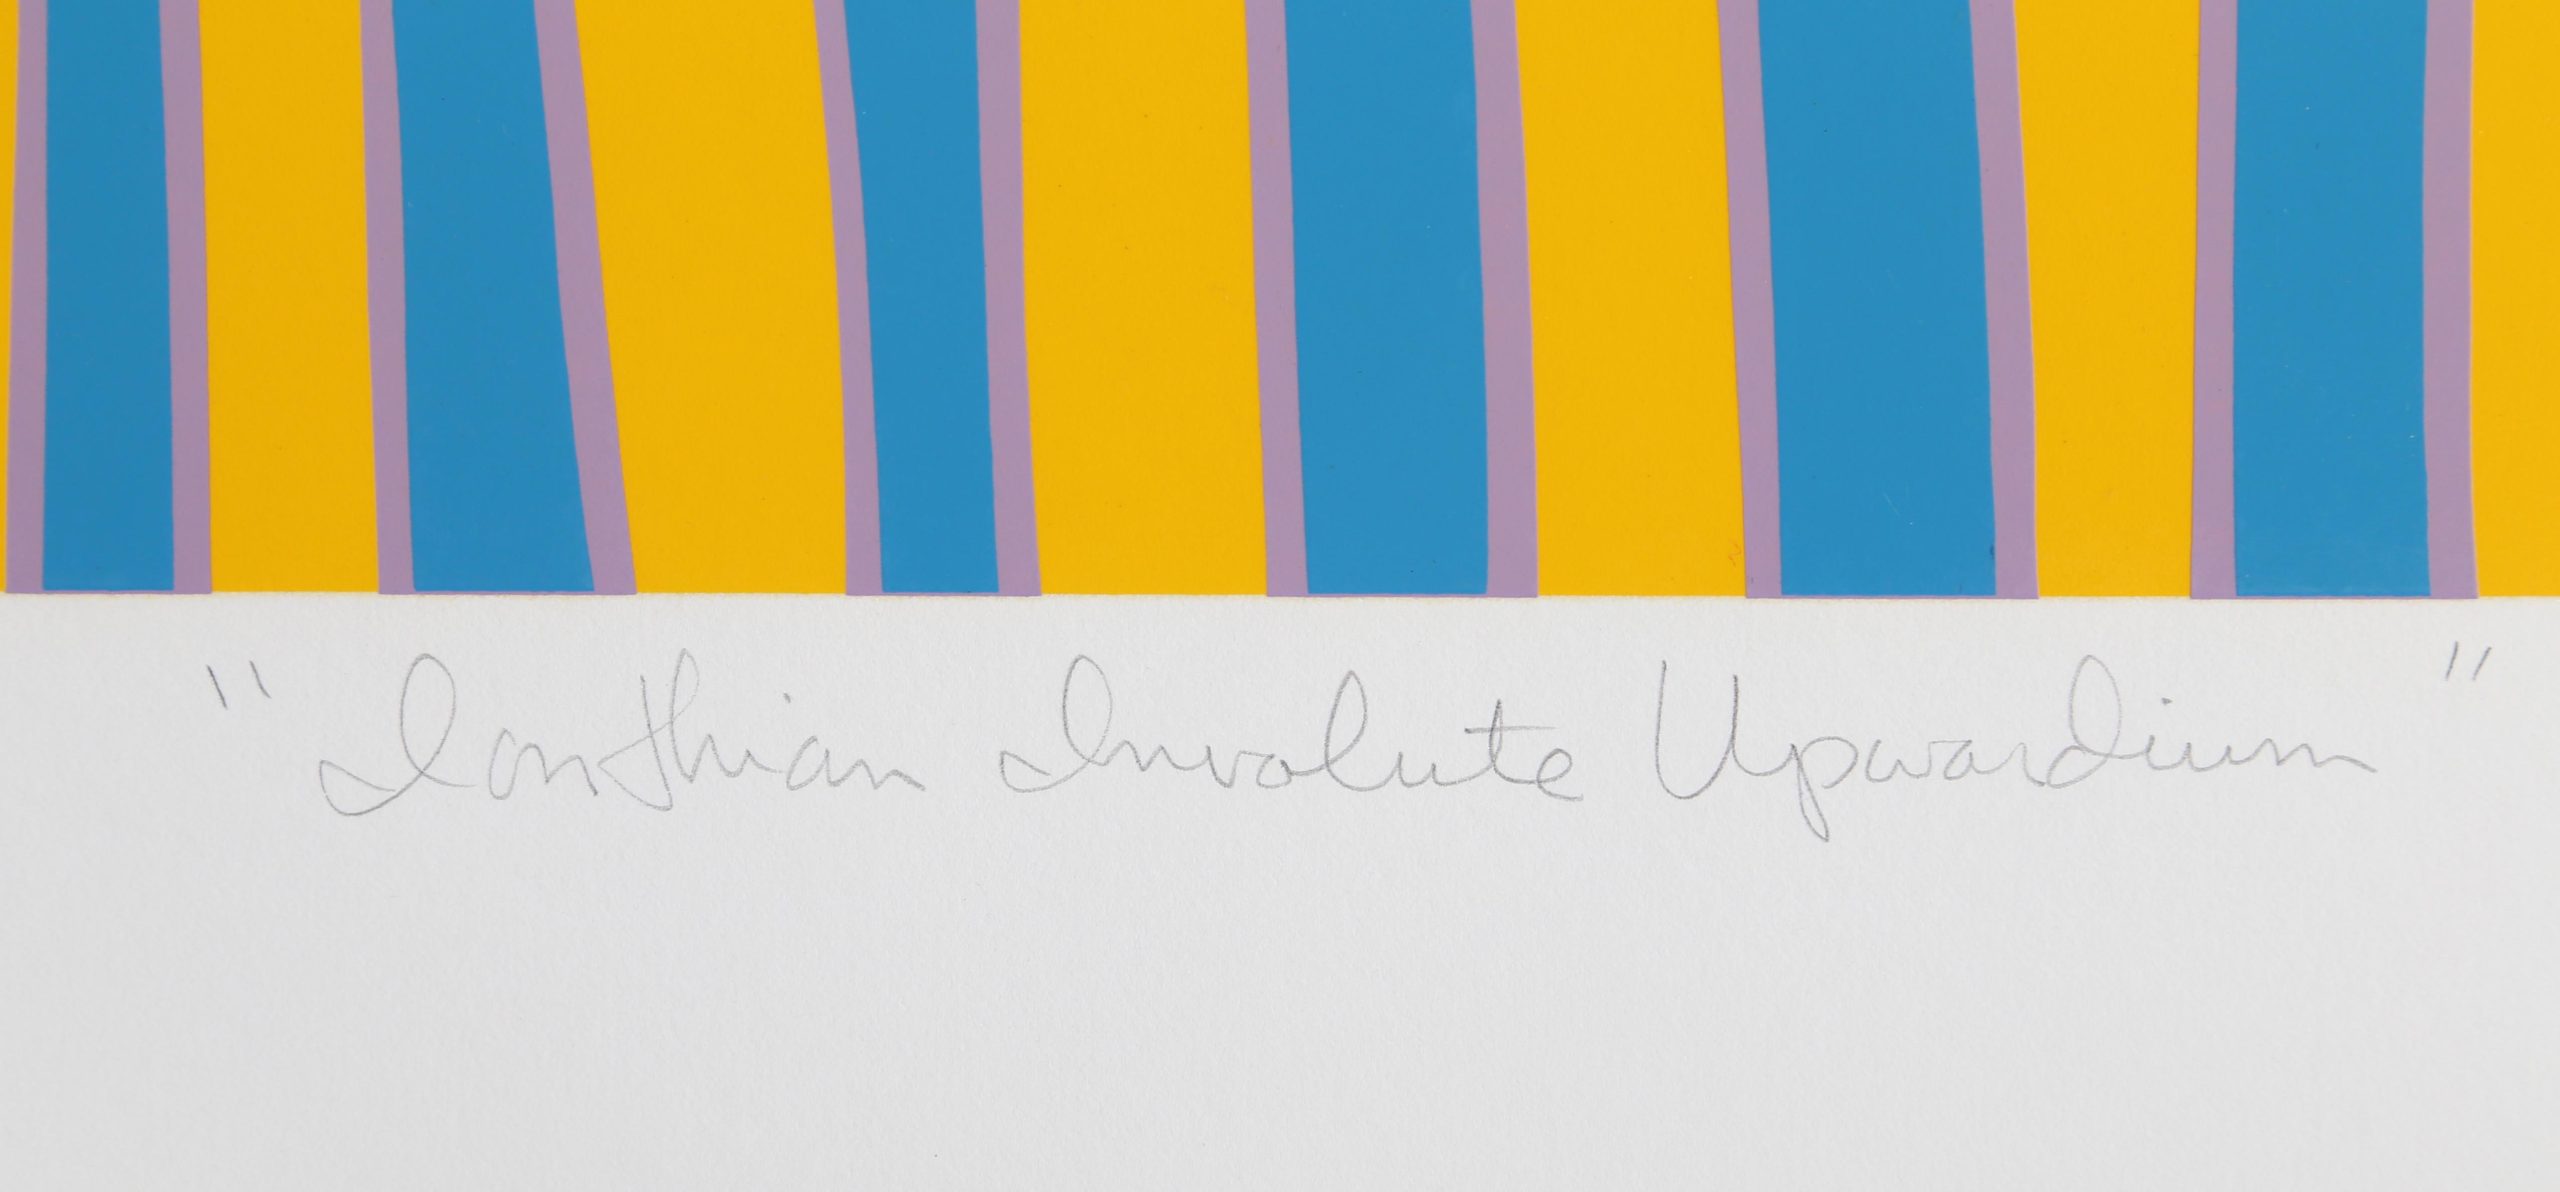 "Ionthian Involute Upwardium"